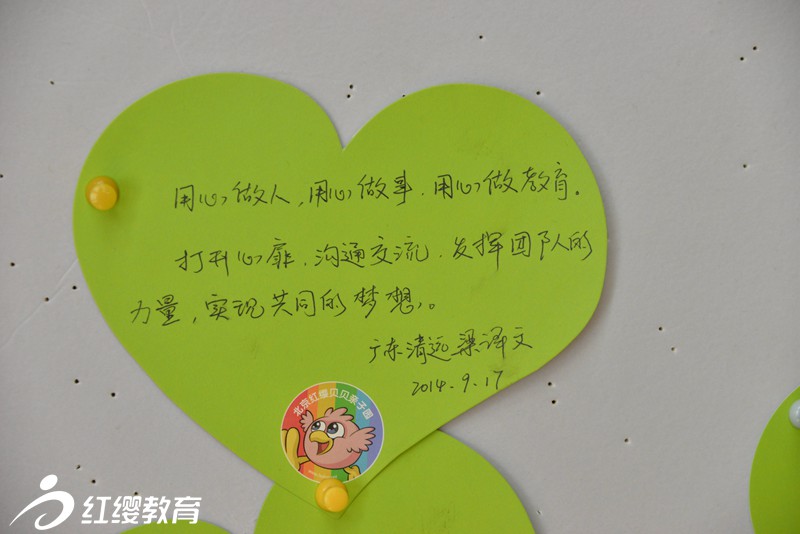 用心做人，用心做事．用心做教育。
打开心扉．沟通交流．发挥团队的
力量，实现共同的梦想。
广东清远 梁译文
2014.9.17
北京红缨贝贝亲子园
红缨教育